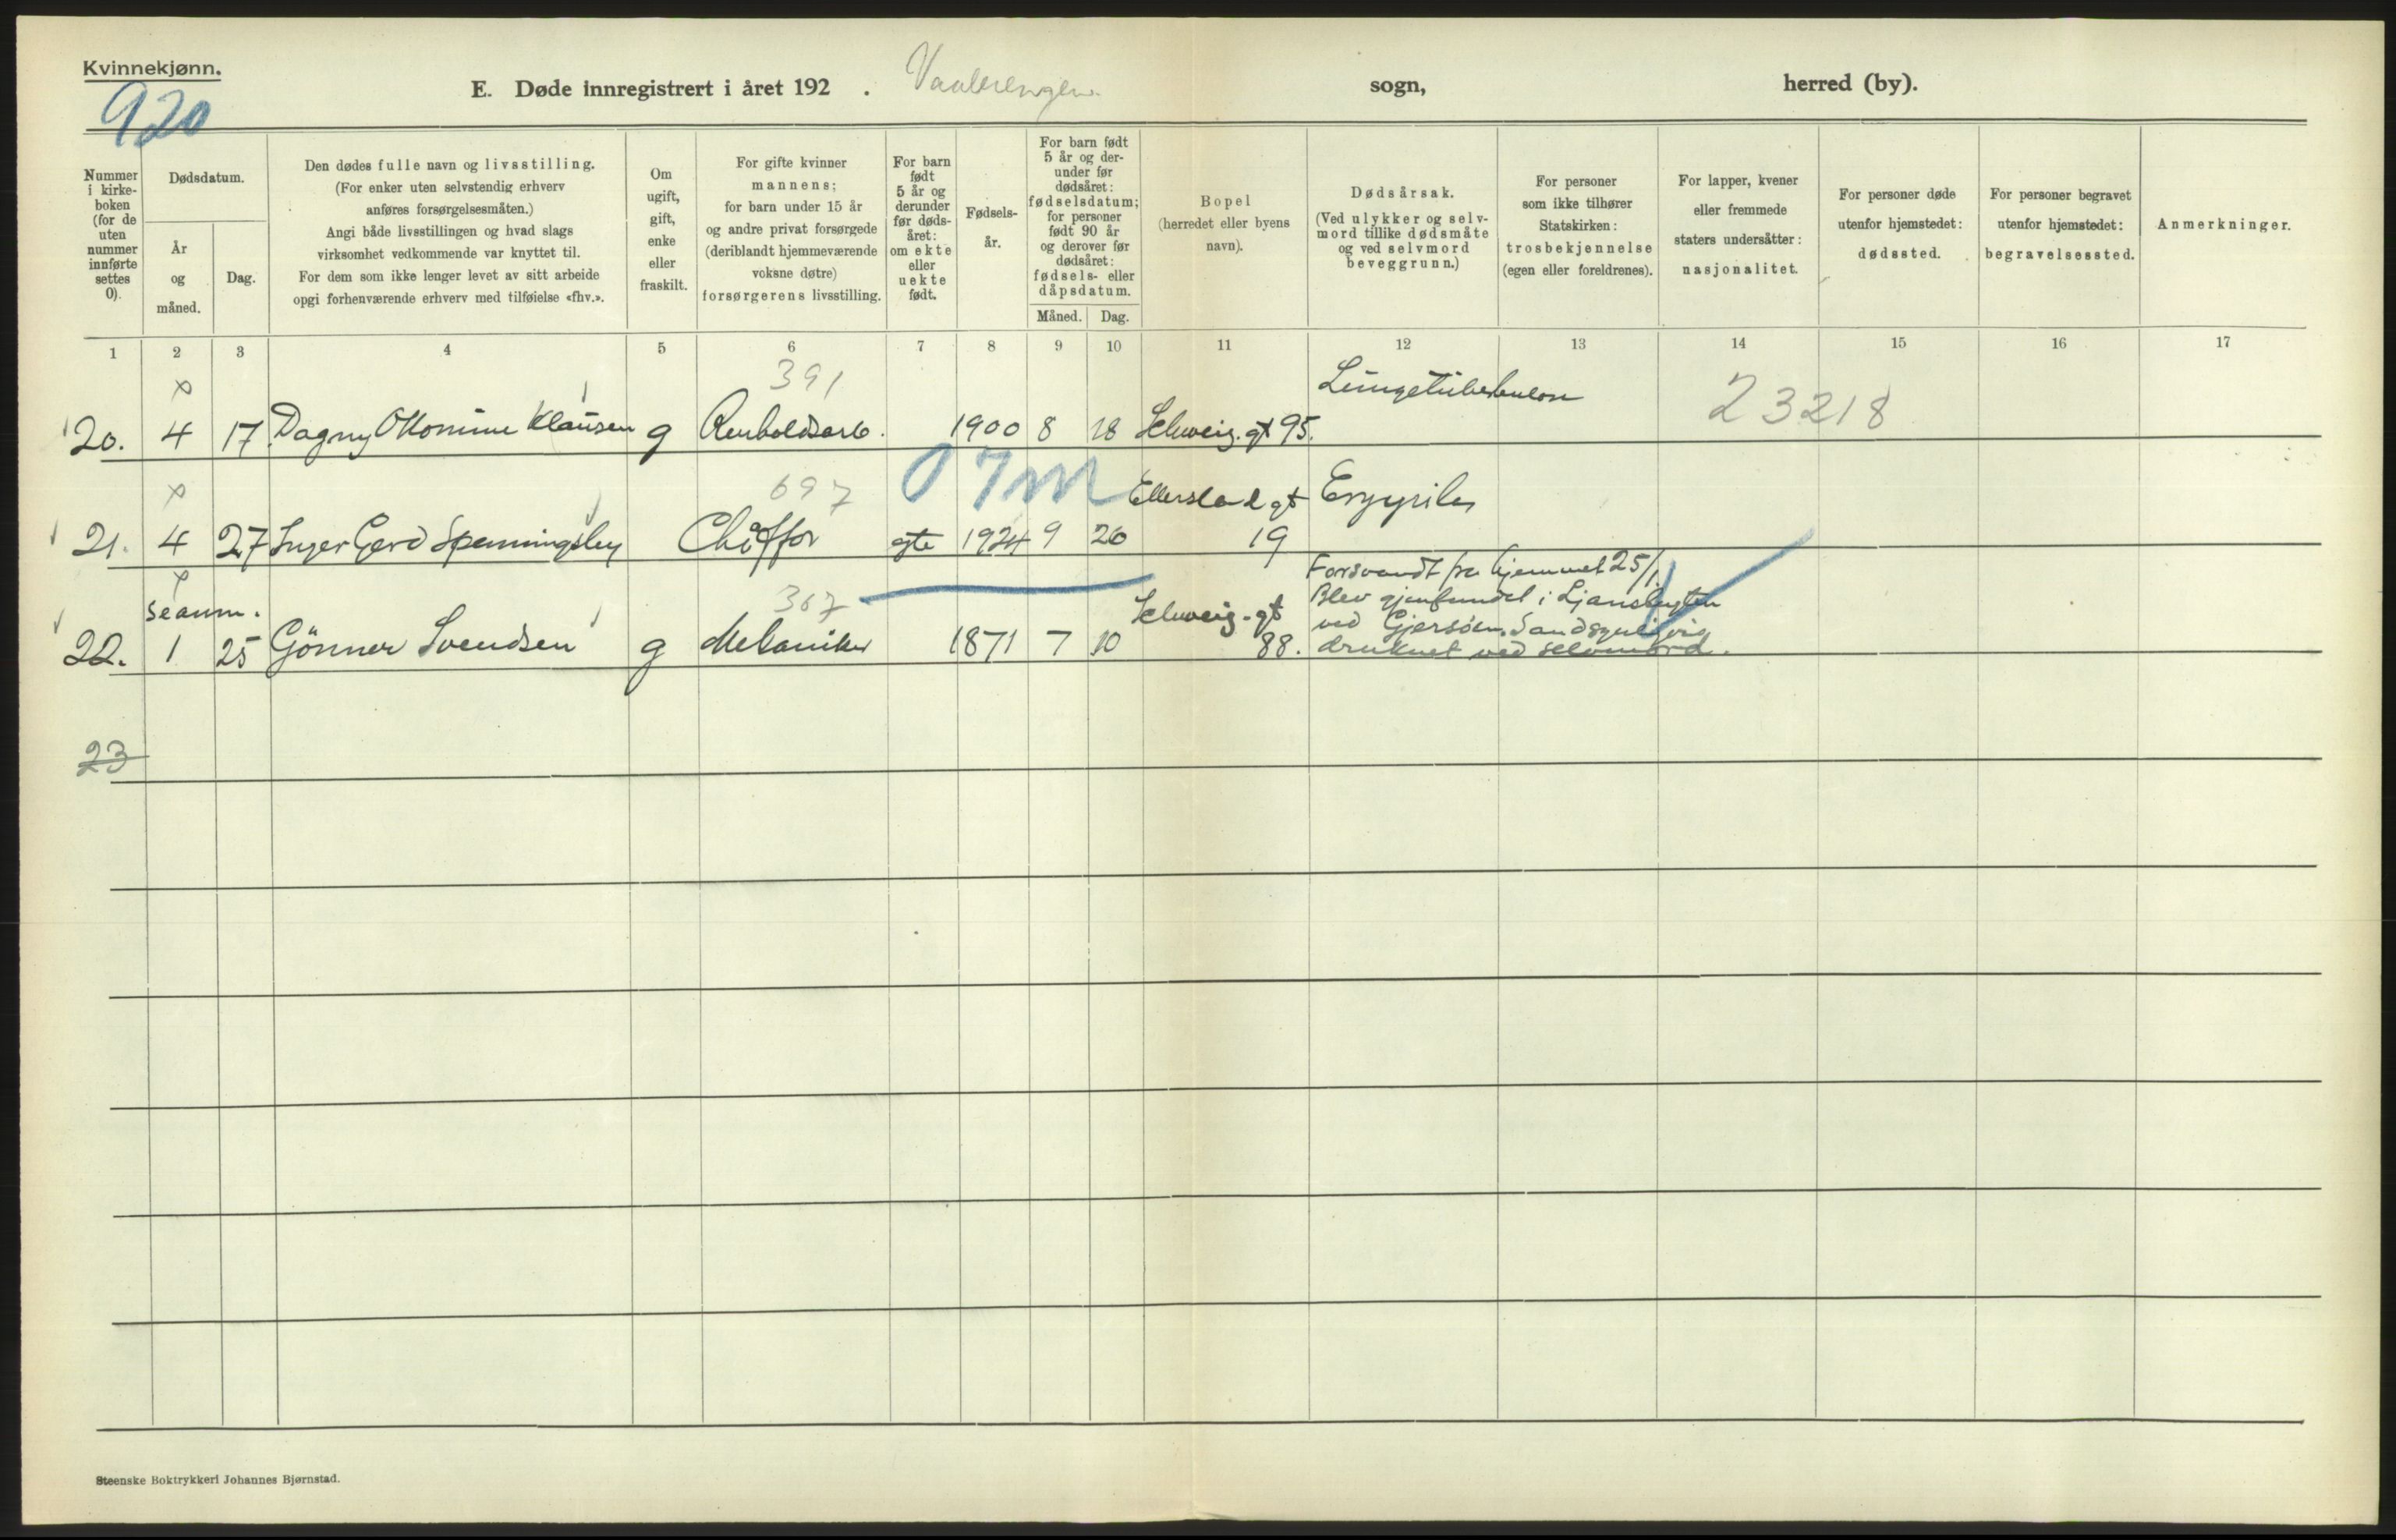 Kvinnekjønn.
920
E. Døde innregistrert i året 192 . Vaalerengen sogn, herred (by).
Nummer i kirke-boken (for de uten nummer innførte settes 0).
Dødsdatum.
År og måned.
Dag.
Den dødes fulle navn og livsstilling.
(For enker uten selvstendig erhverv
anføres forsørgelsesmåten.)
Angi både livsstillingen og hvad slags
virksomhet vedkommende var knyttet til.
For dem som ikke lenger levet av sitt arbeide
opgi forhenværende erhverv med tilføielse «fhv.».
Om
ugift,
gift,
enke
eller
fraskilt.
For gifte kvinner
mannens;
for barn under 15 år
og andre privat forsørgede
(deriblandt hjemmeværende
voksne døtre)
forsørgerens livsstilling.
For barn
født
5 år og
derunder
før døds-
året:
om ekte
eller
uekte
født.
Fødsels-
år.
For barn født
5 år og der-
under før
dødsåret:
fødselsdatum;
for personer
født 90 år
og derover før
dødsåret:
fødsels- eller
dåpsdatum.
Måned. Dag.
Bopel
(herredet eller byens
navn).
Dødsårsak.
(Ved ulykker og selv-
mord tillike dødsmåte
og ved selvmord
beveggrunn.)
For personer
som ikke tilhører
Statskirken:
trosbekjennelse
(egen eller foreldrenes).
For lapper, kvener
eller fremmede
staters undersåtter:
nasjonalitet.
For personer døde
utenfor hjemstedet:
dødssted.
For personer begravet
utenfor hjemstedet:
begravelsessted.
Anmerkninger.
1 2 3 4 5 6 7 8 9 10 11 12 13 14 15 16 17
x 391 Lungetuberkulose 23218
20. 4 17 Dagny Ottomine Klausen g Renholdsarb. 1900 8 18 Schweig. gt 95.
x 697 Ellerslad gt
21. 4 27 Inger Gerd Spenningsby Chaffør egte 1924 9 26 19
x 367 Forsvandt fra hjemmet 25/1.
Blev gjenfundet i
Schweig. gt ved Gjersøen. Sandsynligvis
22. 1 25 Gönner Svendsen g Mekaniker 1871 7 10 88. druknet ved selvmord.
23
Steenske Boktrykkeri Johannes Bjørnstad.